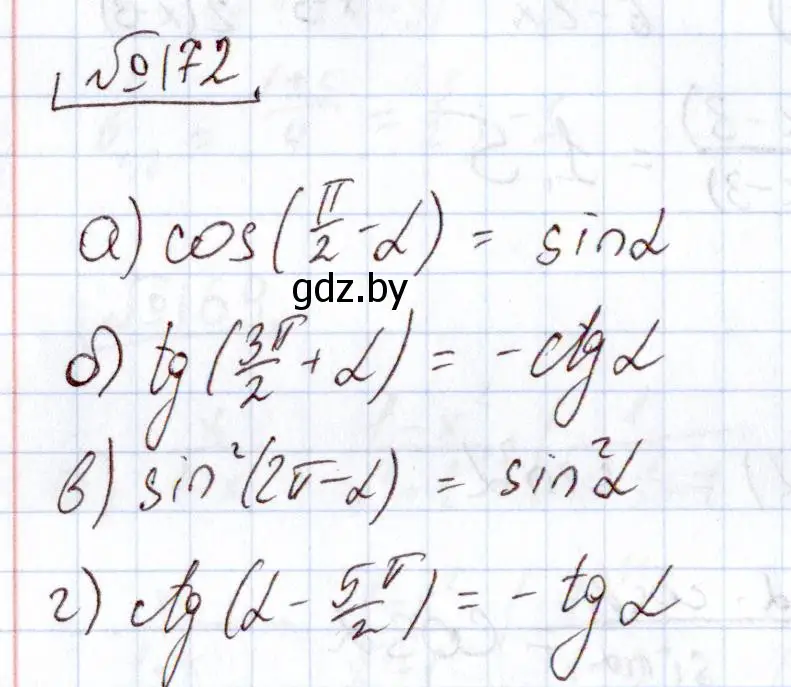 №172
а) cos(π/2 - α) = sinα
gdz.by
б) tg(3π/2 + α) = -ctgα
в) sin²(2π - α) = sin²α
г) ctg(α - 5π/2) = -tgα